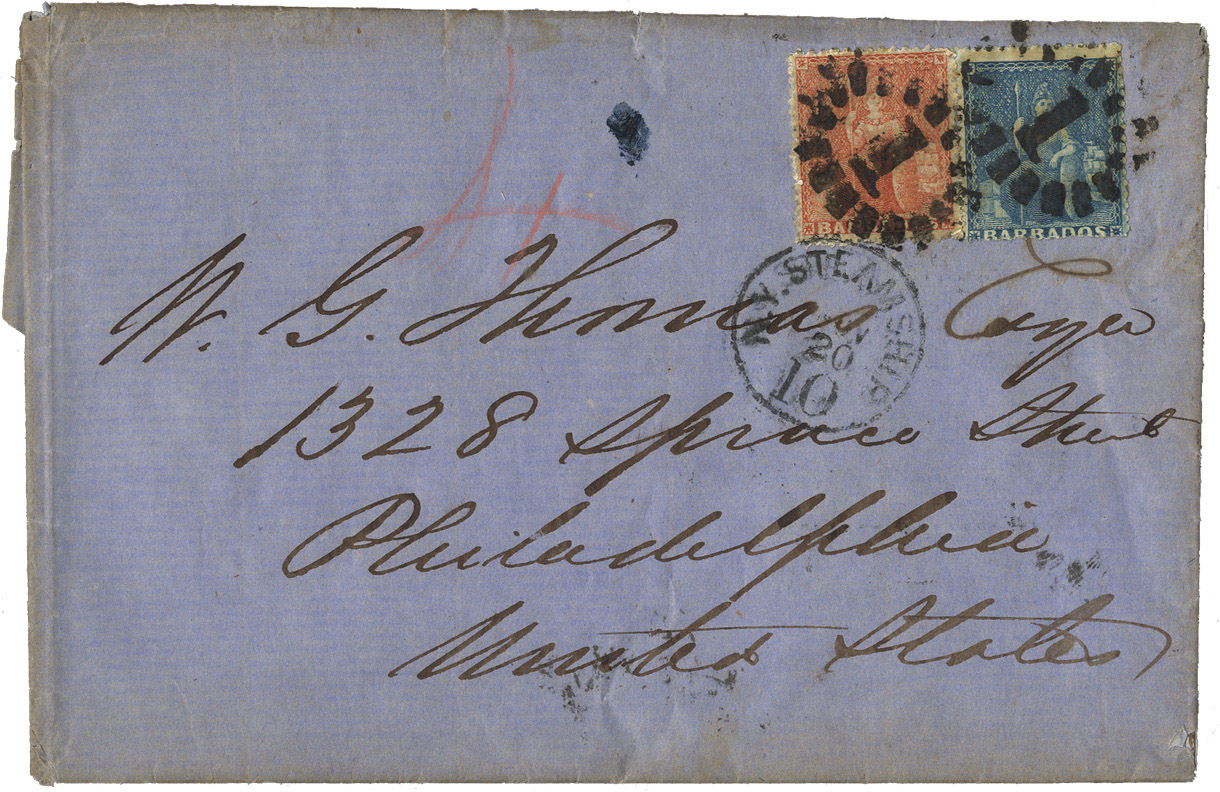 BARBADOS
1
1
N.Y. STEAMSHIP
20
10
W. G. Thomas Esqre
1328 Spruce Street
Philadelphia
United States